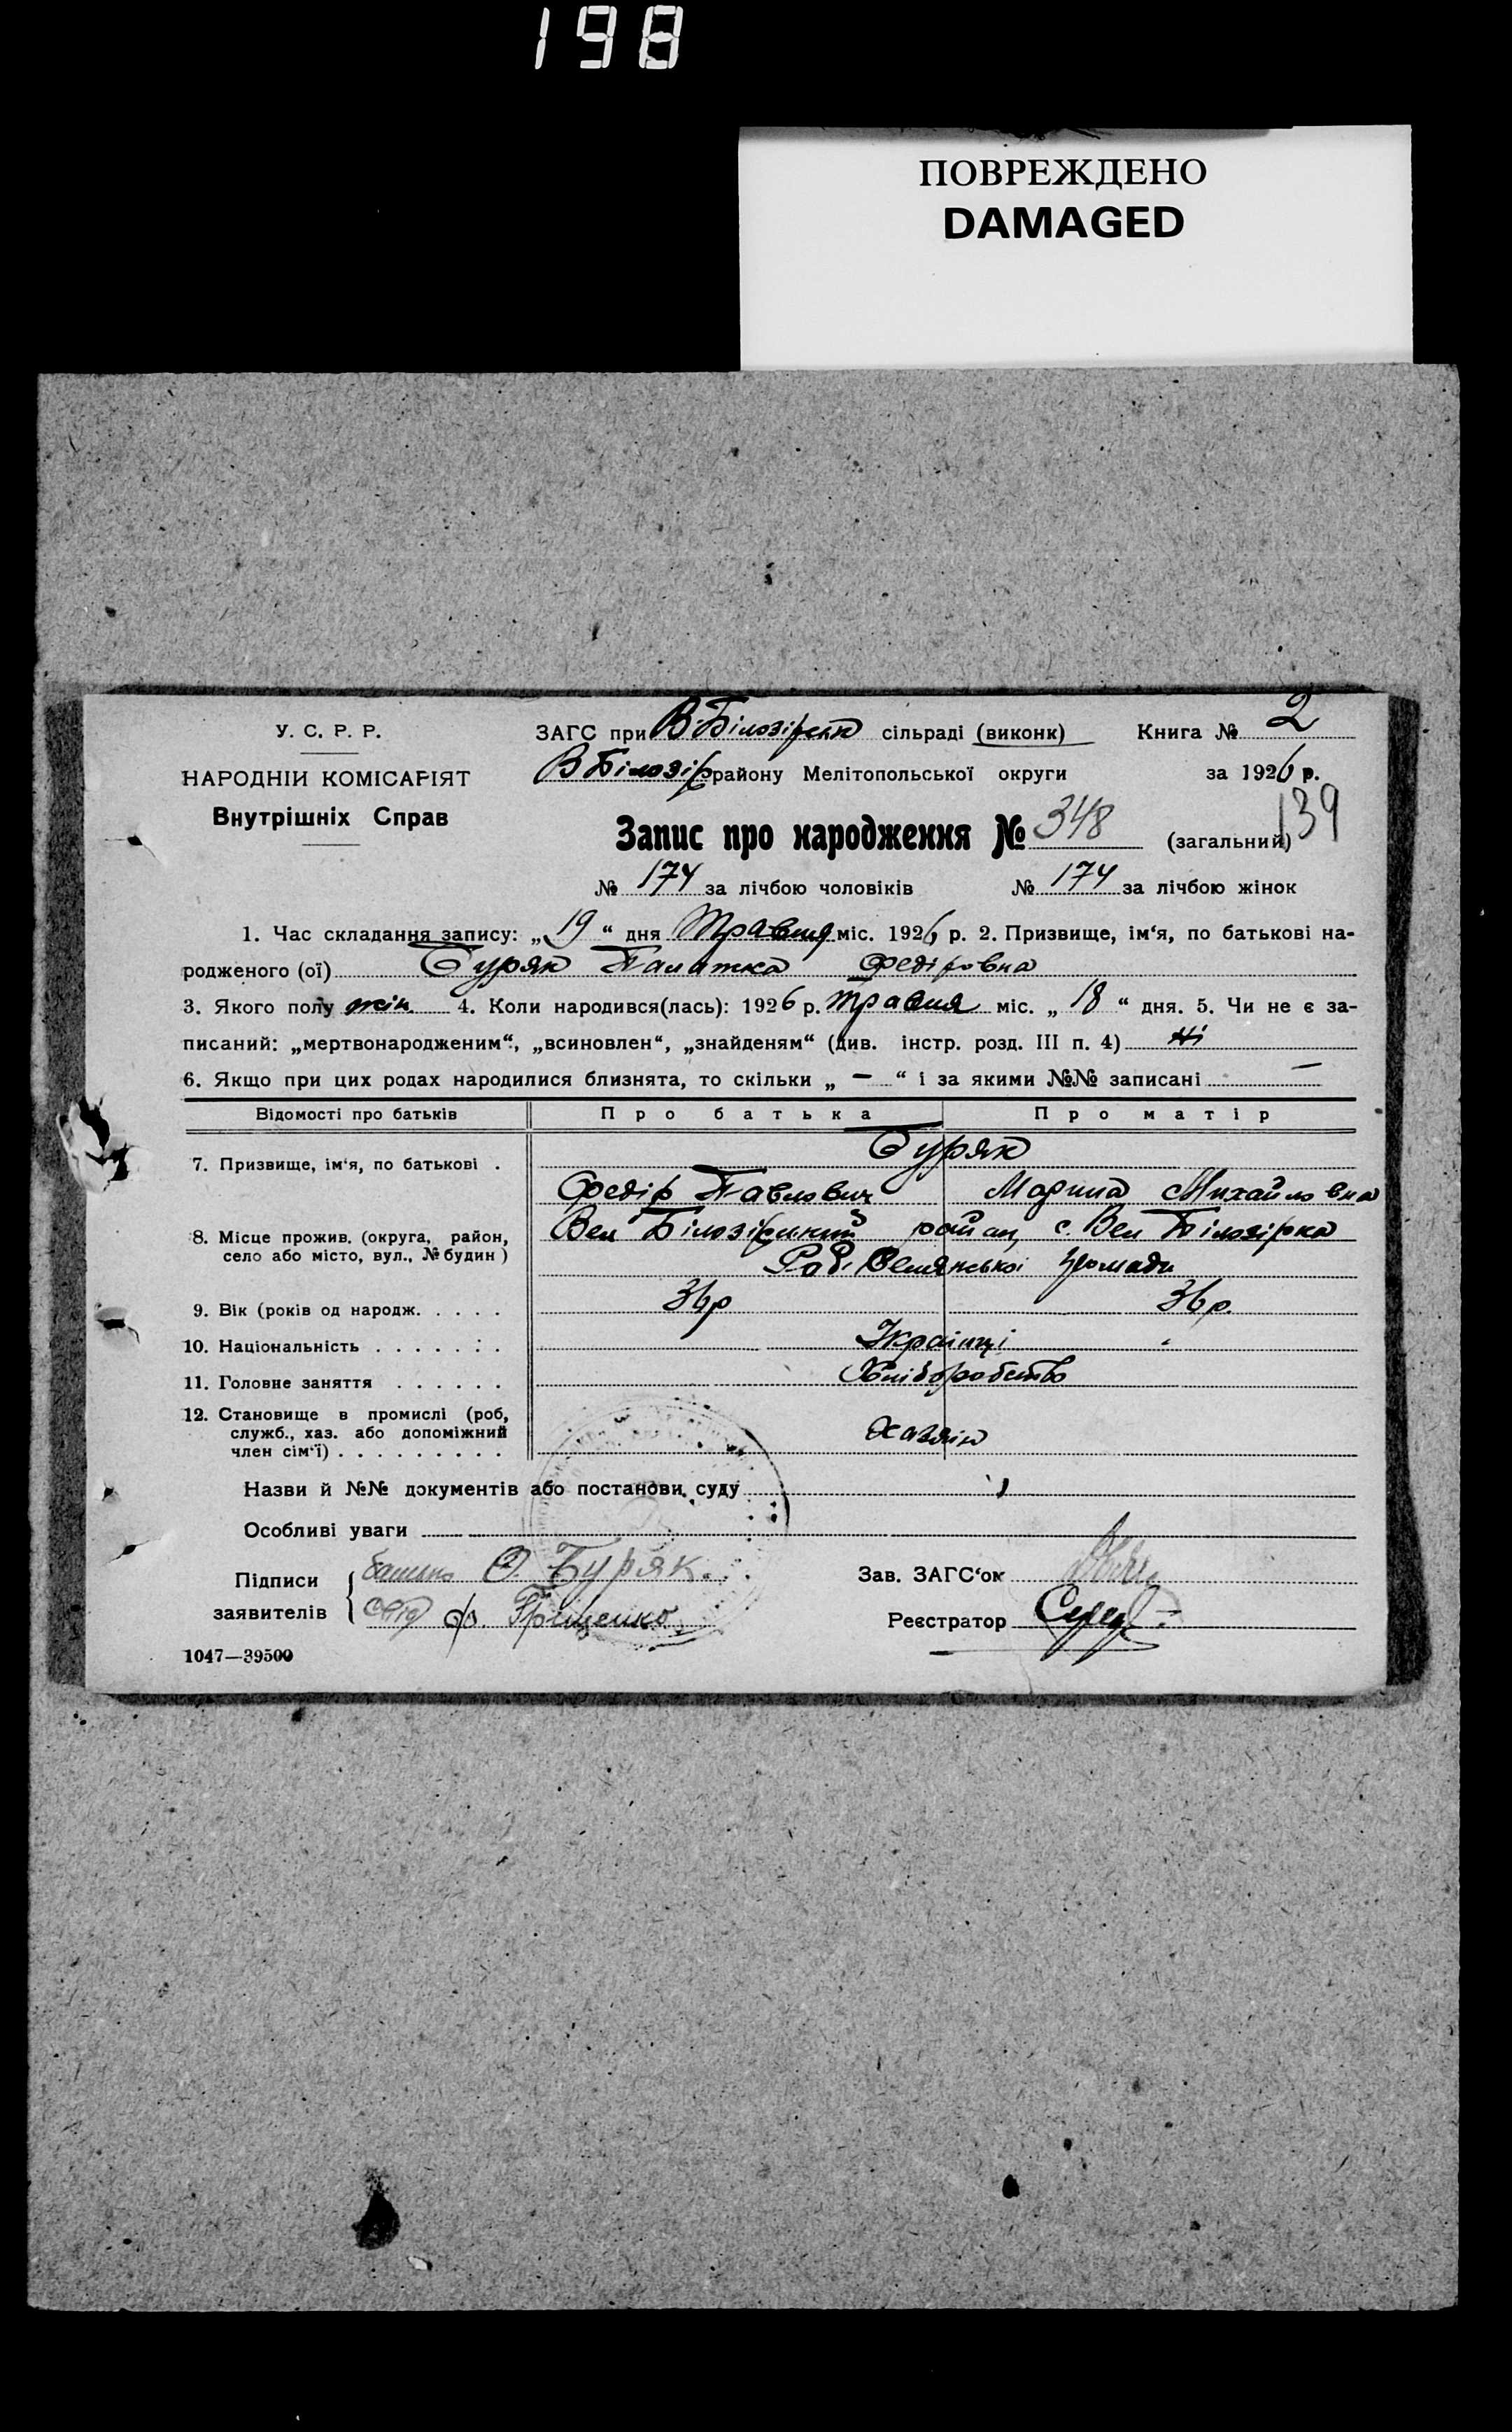 198
ПОВРЕЖДЕНО
DAMAGED
У. С. Р. Р.
НАРОДНІЙ КОМІСАРІЯТ
Внутрішніх Справ
ЗАГС при В Білозірськ сільраді (виконк) Книга № 2
В Білозір району Мелітопольської округи за 1926 р.
139
Запис про народження № 348 (загальний)
№ 174 за лічбою чоловіків № 174 за лічбою жінок
1. Час складання запису: „19“ дня Травня міс. 1926 р. 2. Призвище, ім‘я, по батькові на-
родженого (ої) Буряк Палажка Федіровна
3. Якого полу жін. 4. Коли народився(лась): 1926 р. травня міс. „18“ дня. 5. Чи не є за-
писаний: „мертвонародженим“, „всиновлен“, „знайденям“ (див. інстр. розд. III п. 4) ні
6. Якщо при цих родах народилися близнята, то скільки „ — “ і за якими №№ записані —
Відомості про батьків Про батька Про матір
7. Призвище, ім‘я, по батькові . Буряк
Федір Павлович Марина Михайловна
8. Місце прожив. (округа, район, село або місто, вул., № будин) Вел Білозірський район, с. Вел Білозірка
громади
9. Вік (років од народж. . . . . 36 р 36 р.
10. Національність . . . . . . . Українці
11. Головне заняття . . . . . . Хліборобство
12. Становище в промислі (роб, служб., хаз. або допоміжний член сім‘ї) . . . . . . . . . Хазяін
Назви й №№ документів або постанови суду
Особливі уваги
Підписи заявителів { батько Ф. Буряк.
свід Ф. Грищенко
Зав. ЗАГС‘ом
Реєстратор Серед
1047—39500